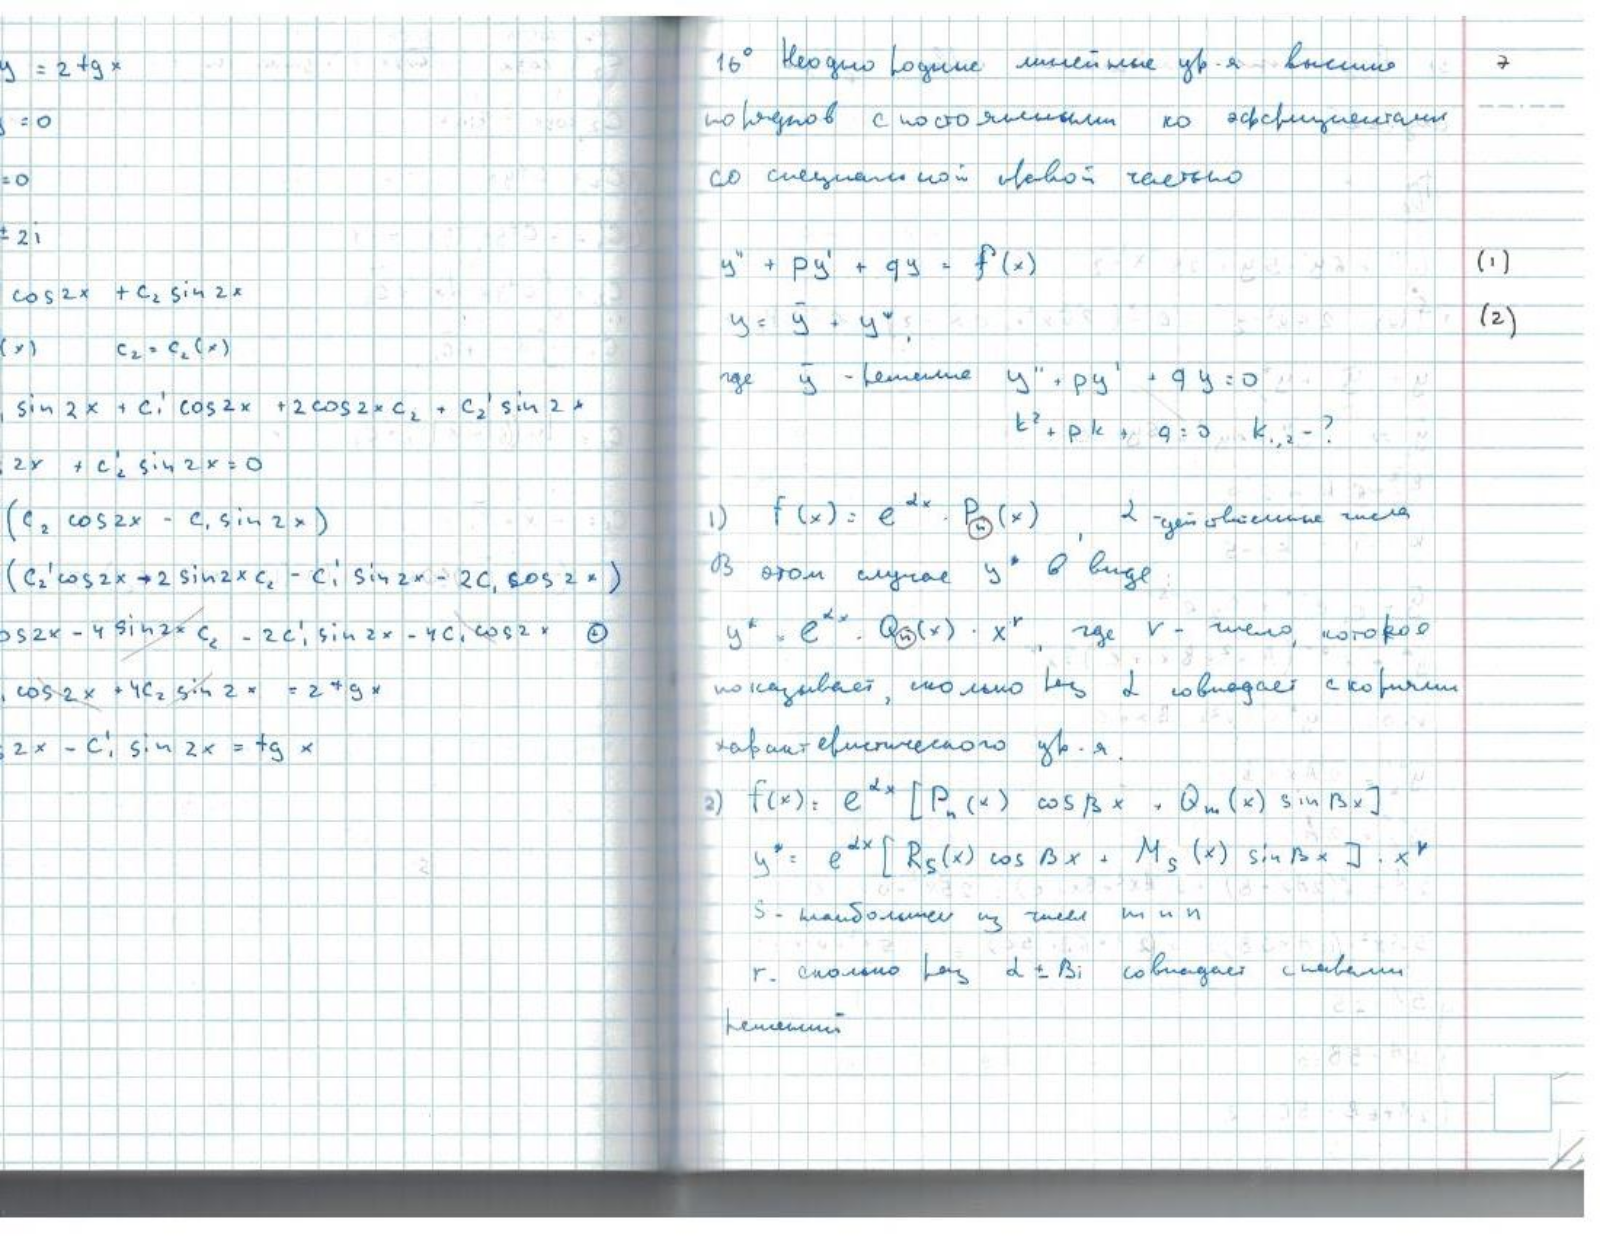 y = 2tgx
y = 0
=0
± 2i
cos2x + C₂ sin 2x
(x) C₂ = C₂(x)
sin 2x + C₁' cos2x + 2cos2x C₂ + C₂' sin 2x
2x + C₂' sin 2x = 0
(C₂ cos2x - C₁ sin 2x)
(C₂' cos2x - 2 sin2x C₂ - C₁' sin 2x - 2C₁ cos 2x)
os2x - 4 sin2x C₂ - 2C₁' sin 2x - 4C₁ cos2x ⊕
cos2x + 4C₂ sin 2x = 2tgx
2x - C₁' sin 2x = tg x
16° Неоднородные линейные ур-я высших 7
порядков с постоянными коэффициентами
со специальной правой частью
y'' + py' + qy = f(x) (1)
y = ȳ + y*, (2)
где ȳ - решение y'' + py' + qy = 0
k² + pk + q = 0 k₁,₂ - ?
1) f(x) = e^αx · Pₙ(x), α - действительные числа
В этом случае y* в виде
y* = e^αx · Qₙ(x) · x^r, где r - число, которое
показывает, сколько раз α совпадает с корнями
характеристического ур-я.
2) f(x) = e^αx [Pₙ(x) cos βx + Qₘ(x) sin βx]
y* = e^αx [R_S(x) cos βx + M_S(x) sin βx] · x^r
S - наибольшее из чисел m и n
r - сколько раз α ± βi совпадает с
решений